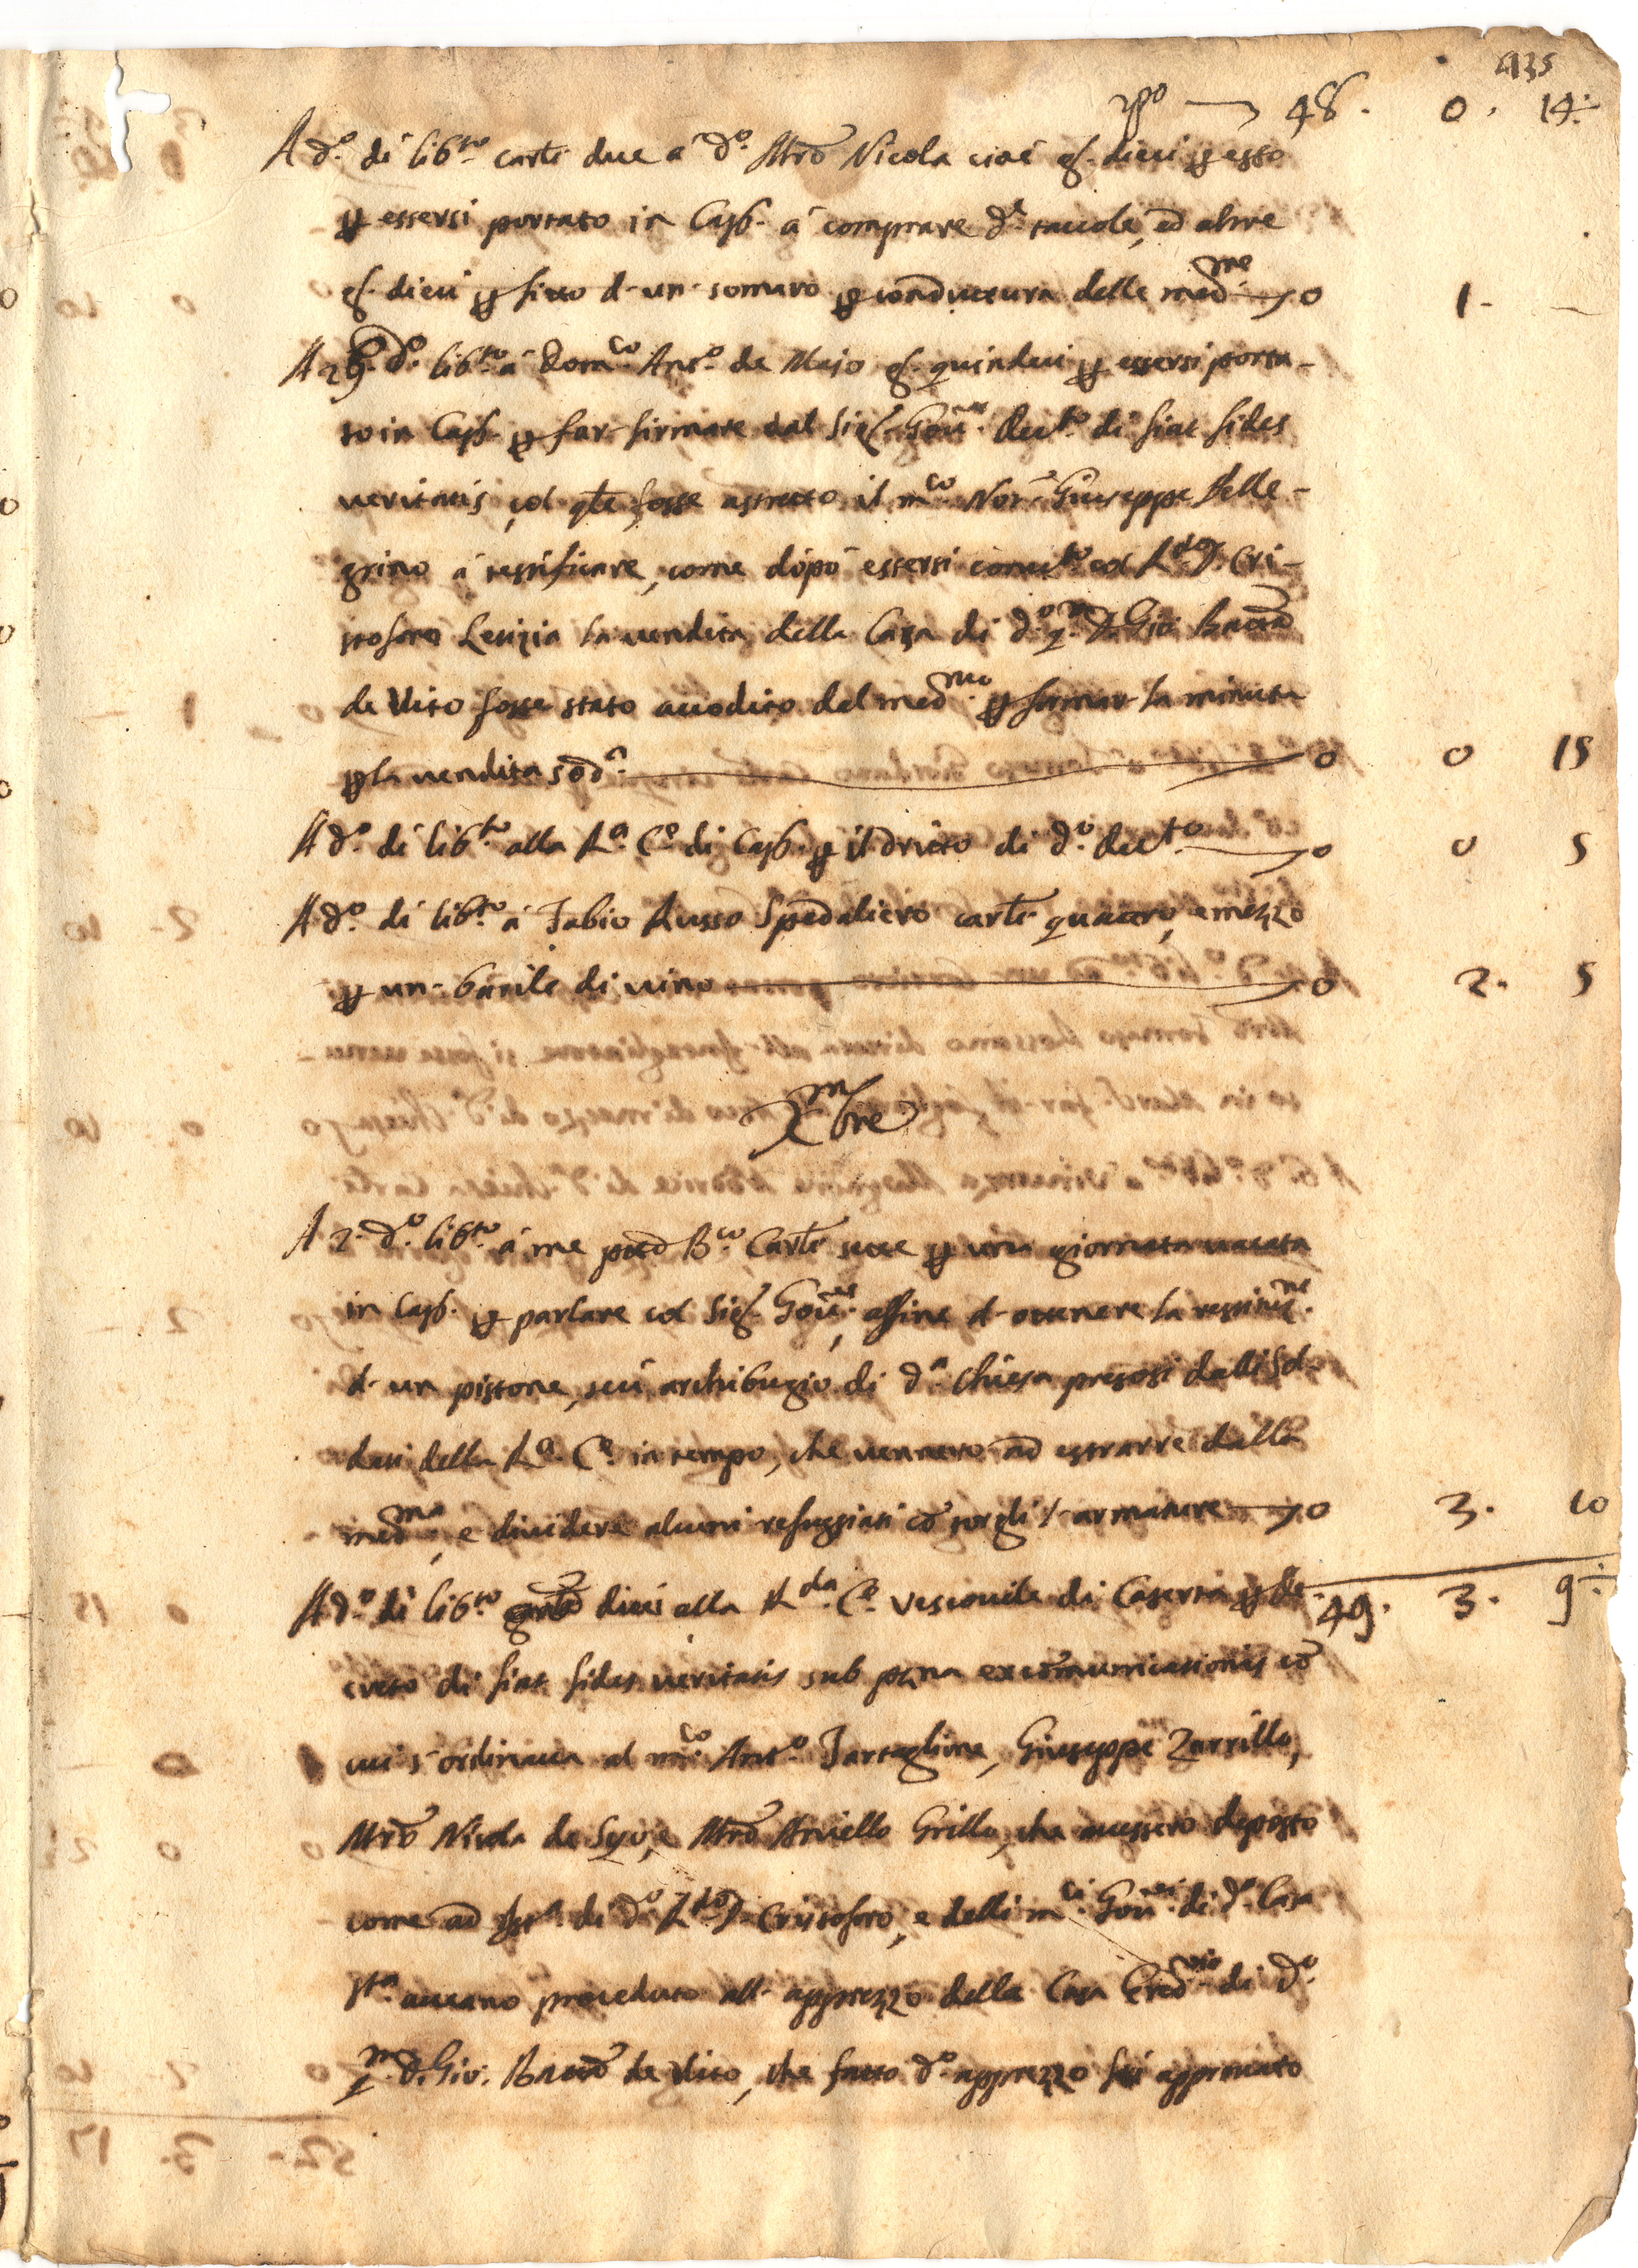 435
rpo 48. 0. 14:
A d.o di lib.to carti due a d.o Mro Nicola cioè g. dieci p esso
p essersi portato in Cas. à comprare d.e taccole, ed altre
g. dieci p fitto d'un somaro p conduttura delle med.me 0 1 -
A 29. d.o lib.to a Dom.co Ant.o de Majo g. quindeci p essersi porta-
to in Cas. p far firmare dal Sig. Gov.re Dec.to di fiat fides
veritatis, col qle fosse astretto il m.co Not. Giuseppe Pelle-
grino à testificare, come dopò essersi conclu.to col R.do D. Cri-
stofaro Letizia la vendita della Casa di d.o q.m D. Gio: Batta
de Vito fosse stato accodito dal med.mo p formar la minuta
p la vendita sod.a 0 0 15
A d.o di lib.to alla R.a C.e di Cas. p il dritto di d.o Dec.to 0 0 5
A d.o di lib.to à Fabio Russo Spedaliero carti quattro, e mezzo
p un barile di vino 0 2. 5
Xmbre
A 2. d.o lib.to à me pred B.co Carti sette p una giornata vacata
in Cas. p parlare col Sig. Gov.re, affine d'ottenere la restituz.ne
d'un pistone, seù archibugio di d.a Chiesa presosi dalli Sol-
dati della R.a C.e in tempo, che vennero ad estrarre dalla
med.ma, e dividere alcuni refuggiati cō armature 0 3. 10
A d.o di lib.to dieci alla R.da C.e Vescovile di Caserta p de- 49. 3. 9:
creto di fiat fides veritatis sub pena excōmunicationis cō
cui s'ordinava al m.co Ant.o Tartaglione, Giuseppe Zarrillo,
Mro Nicola de Sivo, e Mro Aniello Grillo, che avessero deposto
come ad ist.a di d.o R.do D. Cristofaro, e delli m.ci Gov.ri di d.a Casa
S.ta aveano proceduto all'apprezzo della Casa Ered.ria di d.o
q.m D. Gio: Batta de Vito, che fatto d.o apprezzo fù approvato